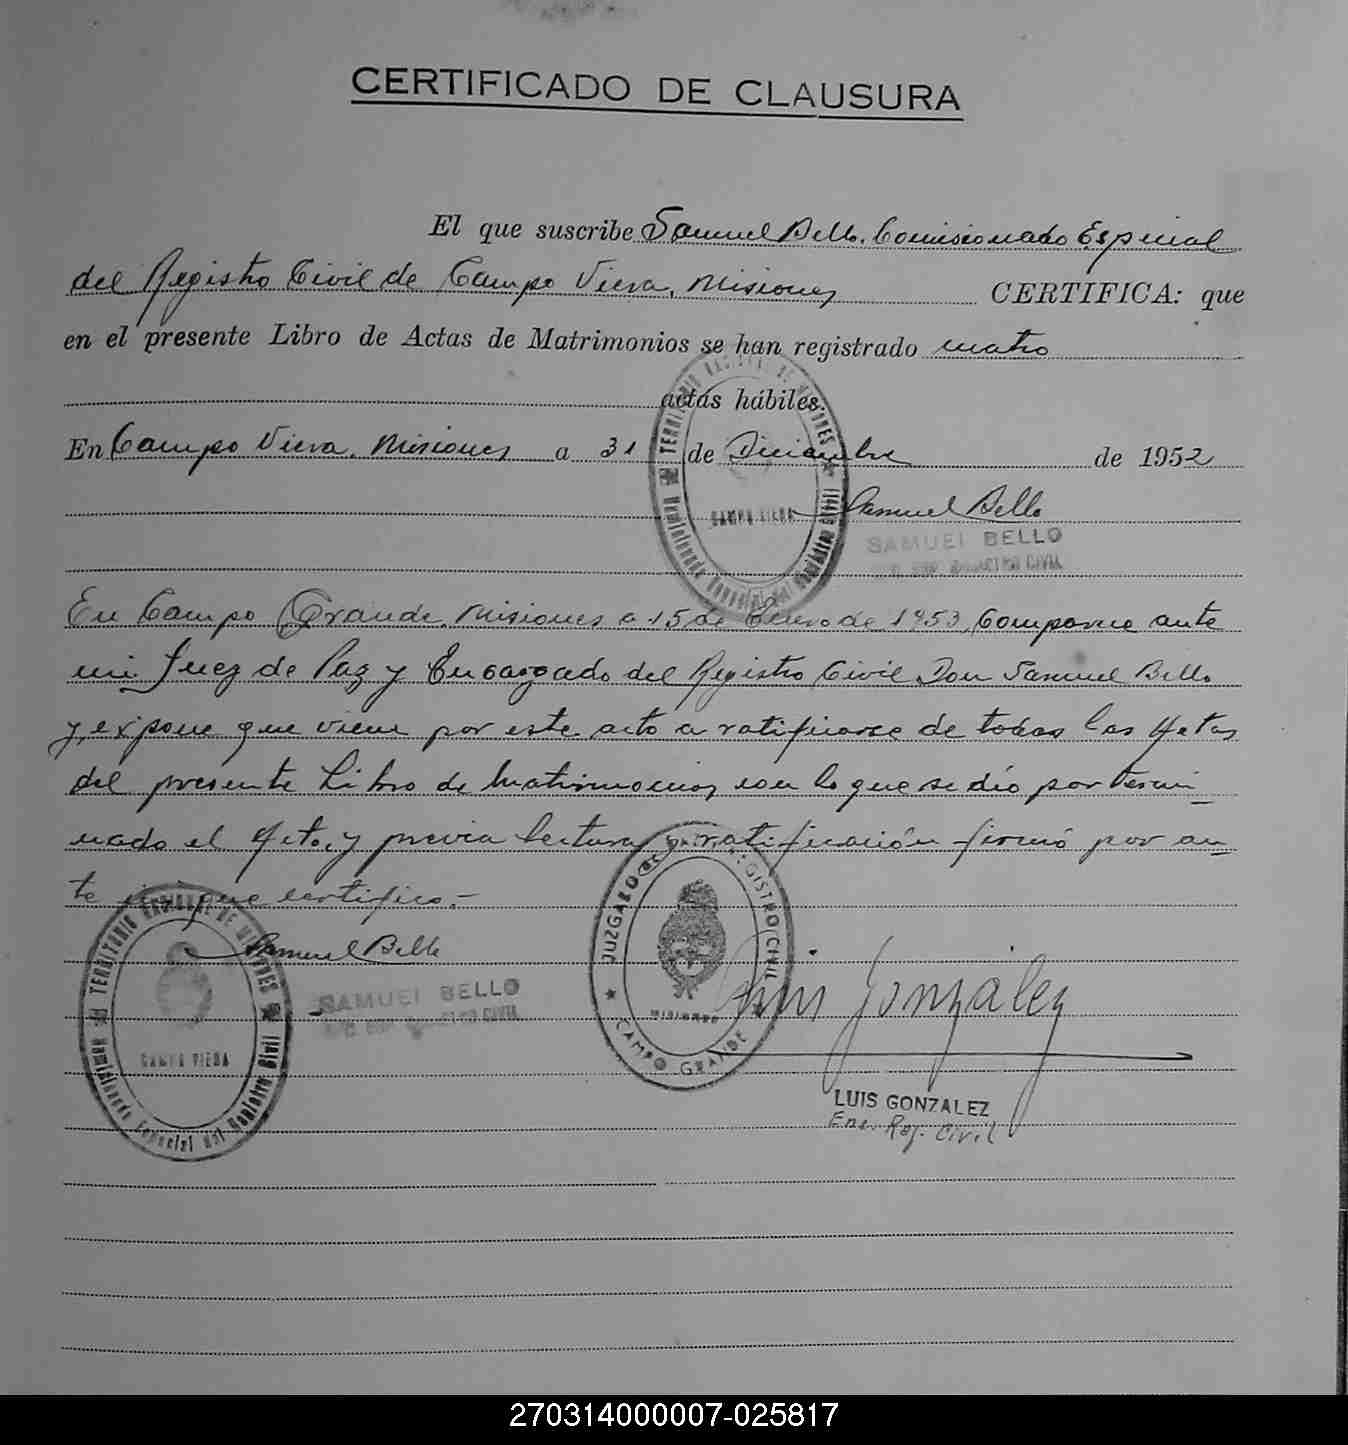 CERTIFICADO DE CLAUSURA
El que suscribe Samuel Bello, Comisionado Especial
del Registro Civil de Campo Viera, Misiones CERTIFICA: que
en el presente Libro de Actas de Matrimonios se han registrado cuatro
actas hábiles.
En Campo Viera, Misiones a 31 de Diciembre de 1952
Samuel Bello
SAMUEL BELLO
TERRITORIO NACIONAL DE MISIONES
Comisionado Especial del Registro Civil
CAMPO VIERA
En Campo Grande, Misiones a 15 de Enero de 1953, Comparece ante
mi Juez de Paz y Encargado del Registro Civil Don Samuel Bello
y, expone que viene por este acto a ratificarse de todas las Actas
del presente Libro de Matrimonios con lo que se dió por termi_
nado el Acto, y previa lectura y ratificación firmó por an_
te mi que certifico.-
Samuel Bello
SAMUEL BELLO
TERRITORIO NACIONAL DE MISIONES
Comisionado Especial del Registro Civil
CAMPO VIERA
JUZGADO DE PAZ Y REGISTRO CIVIL
MISIONES
CAMPO GRANDE
Luis González
LUIS GONZALEZ
Enc. Reg. Civil
270314000007-025817